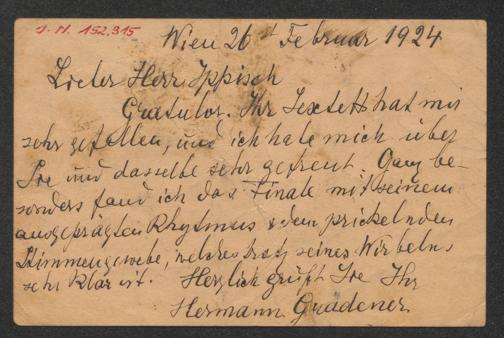 I.N. 152.315
Wien 26t Februar 1924
Lieber Herr Ippisch
Gratulor. Ihr Sextett hat mir
sehr gefallen, und ich habe mich über
Sie und dasselbe sehr gefreut. Ganz be-
sonders fand ich das Finale mit seinem
ausgeprägten Rhytmus u dem prickelnden
Stimmengewebe, welches trotz seines Wirbelns
sehr klar ist. Herzlich grüßt Sie Ihr
Hermann Grädener